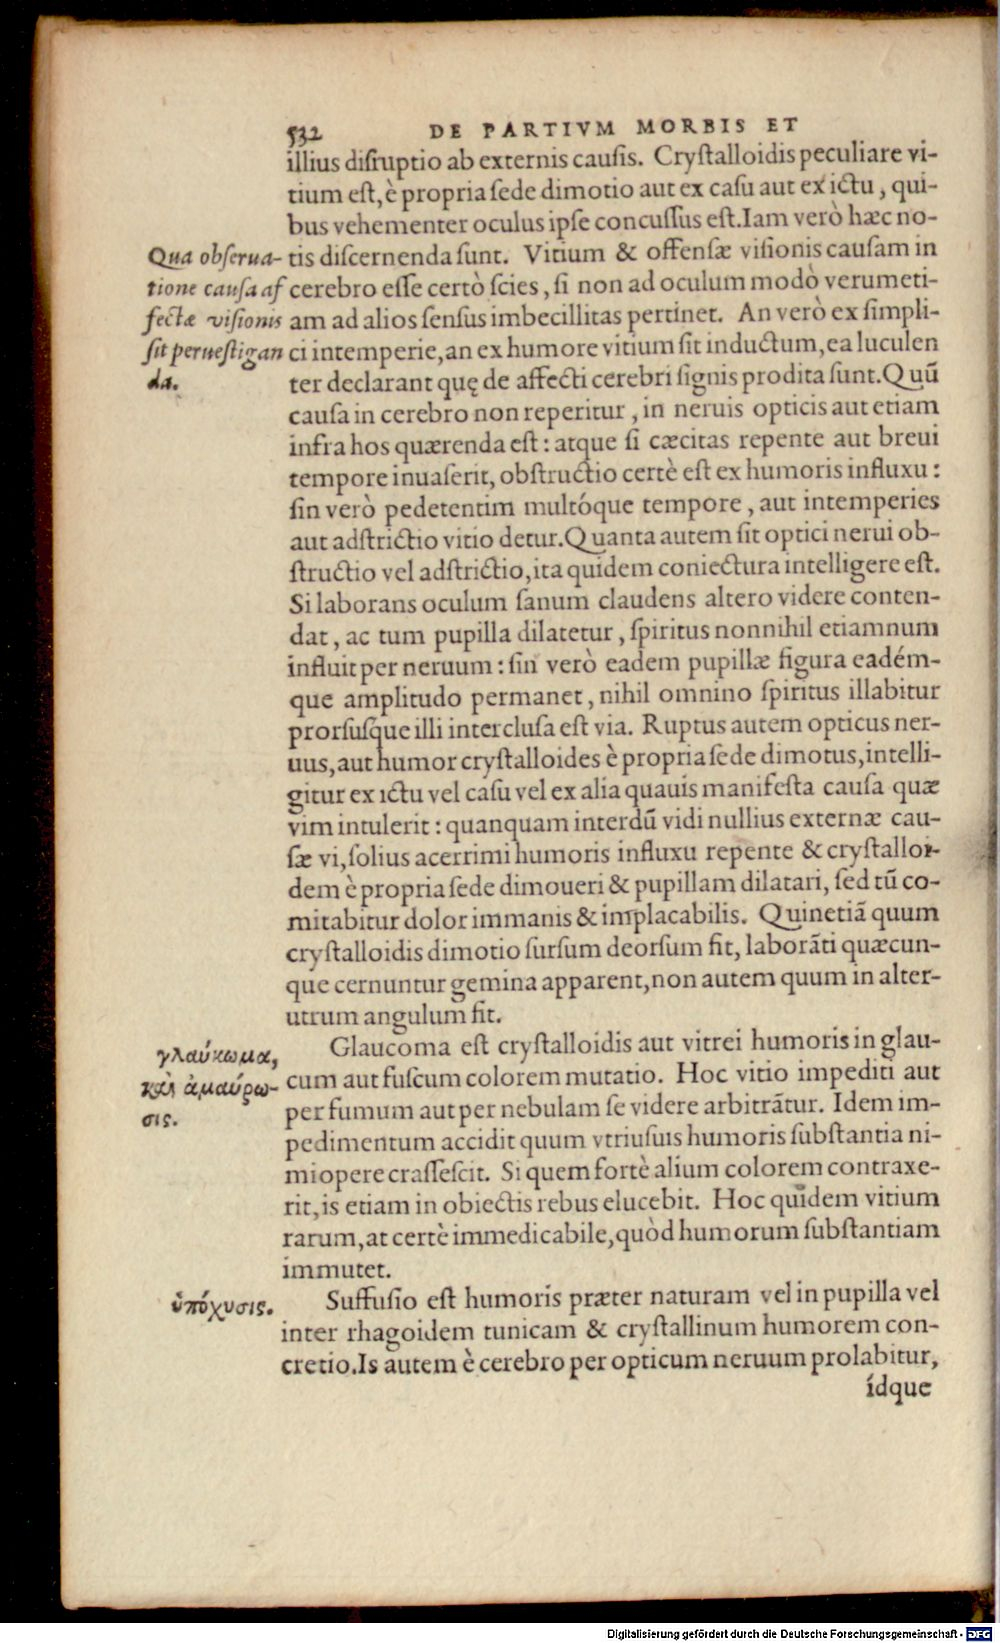 532 DE PARTIVM MORBIS ET
illius disruptio ab externis causis. Crystalloidis peculiare vi-
tium est, è propria sede dimotio aut ex casu aut ex ictu, qui-
bus vehementer oculus ipse concussus est. Iam verò hæc no-
Qua obserua-
tione causa af
fectæ visionis
sit peruestigan
da.
tis discernenda sunt. Vitium & offensæ visionis causam in
cerebro esse certò scies, si non ad oculum modò verumeti-
am ad alios sensus imbecillitas pertinet. An verò ex simpli-
ci intemperie, an ex humore vitium sit inductum, ea luculen
ter declarant quę de affecti cerebri signis prodita sunt. Quū
causa in cerebro non reperitur, in neruis opticis aut etiam
infra hos quærenda est: atque si cæcitas repente aut breui
tempore inuaserit, obstructio certè est ex humoris influxu:
sin verò pedetentim multóque tempore, aut intemperies
aut adstrictio vitio detur. Quanta autem sit optici nerui ob-
structio vel adstrictio, ita quidem coniectura intelligere est.
Si laborans oculum sanum claudens altero videre conten-
dat, ac tum pupilla dilatetur, spiritus nonnihil etiamnum
influit per neruum: sin verò eadem pupillæ figura eadém-
que amplitudo permanet, nihil omnino spiritus illabitur
prorsusque illi interclusa est via. Ruptus autem opticus ner-
uus, aut humor crystalloides è propria sede dimotus, intelli-
gitur ex ictu vel casu vel ex alia quauis manifesta causa quæ
vim intulerit: quanquam interdū vidi nullius externæ cau-
sæ vi, solius acerrimi humoris influxu repente & crystalloi-
dem è propria sede dimoueri & pupillam dilatari, sed tū co-
mitabitur dolor immanis & implacabilis. Quinetiā quum
crystalloidis dimotio sursum deorsum fit, laborāti quæcun-
que cernuntur gemina apparent, non autem quum in alter-
utrum angulum fit.
γλαύκωμα,
καὶ ἀμαύρω-
σις.
Glaucoma est crystalloidis aut vitrei humoris in glau-
cum aut fuscum colorem mutatio. Hoc vitio impediti aut
per fumum aut per nebulam se videre arbitrātur. Idem im-
pedimentum accidit quum vtriusuis humoris substantia ni-
miopere crassescit. Si quem fortè alium colorem contraxe-
rit, is etiam in obiectis rebus elucebit. Hoc quidem vitium
rarum, at certè immedicabile, quòd humorum substantiam
immutet.
ὑπόχυσις.
Suffusio est humoris præter naturam vel in pupilla vel
inter rhagoidem tunicam & crystallinum humorem con-
cretio. Is autem è cerebro per opticum neruum prolabitur,
ídque
Digitalisierung gefördert durch die Deutsche Forschungsgemeinschaft - DFG